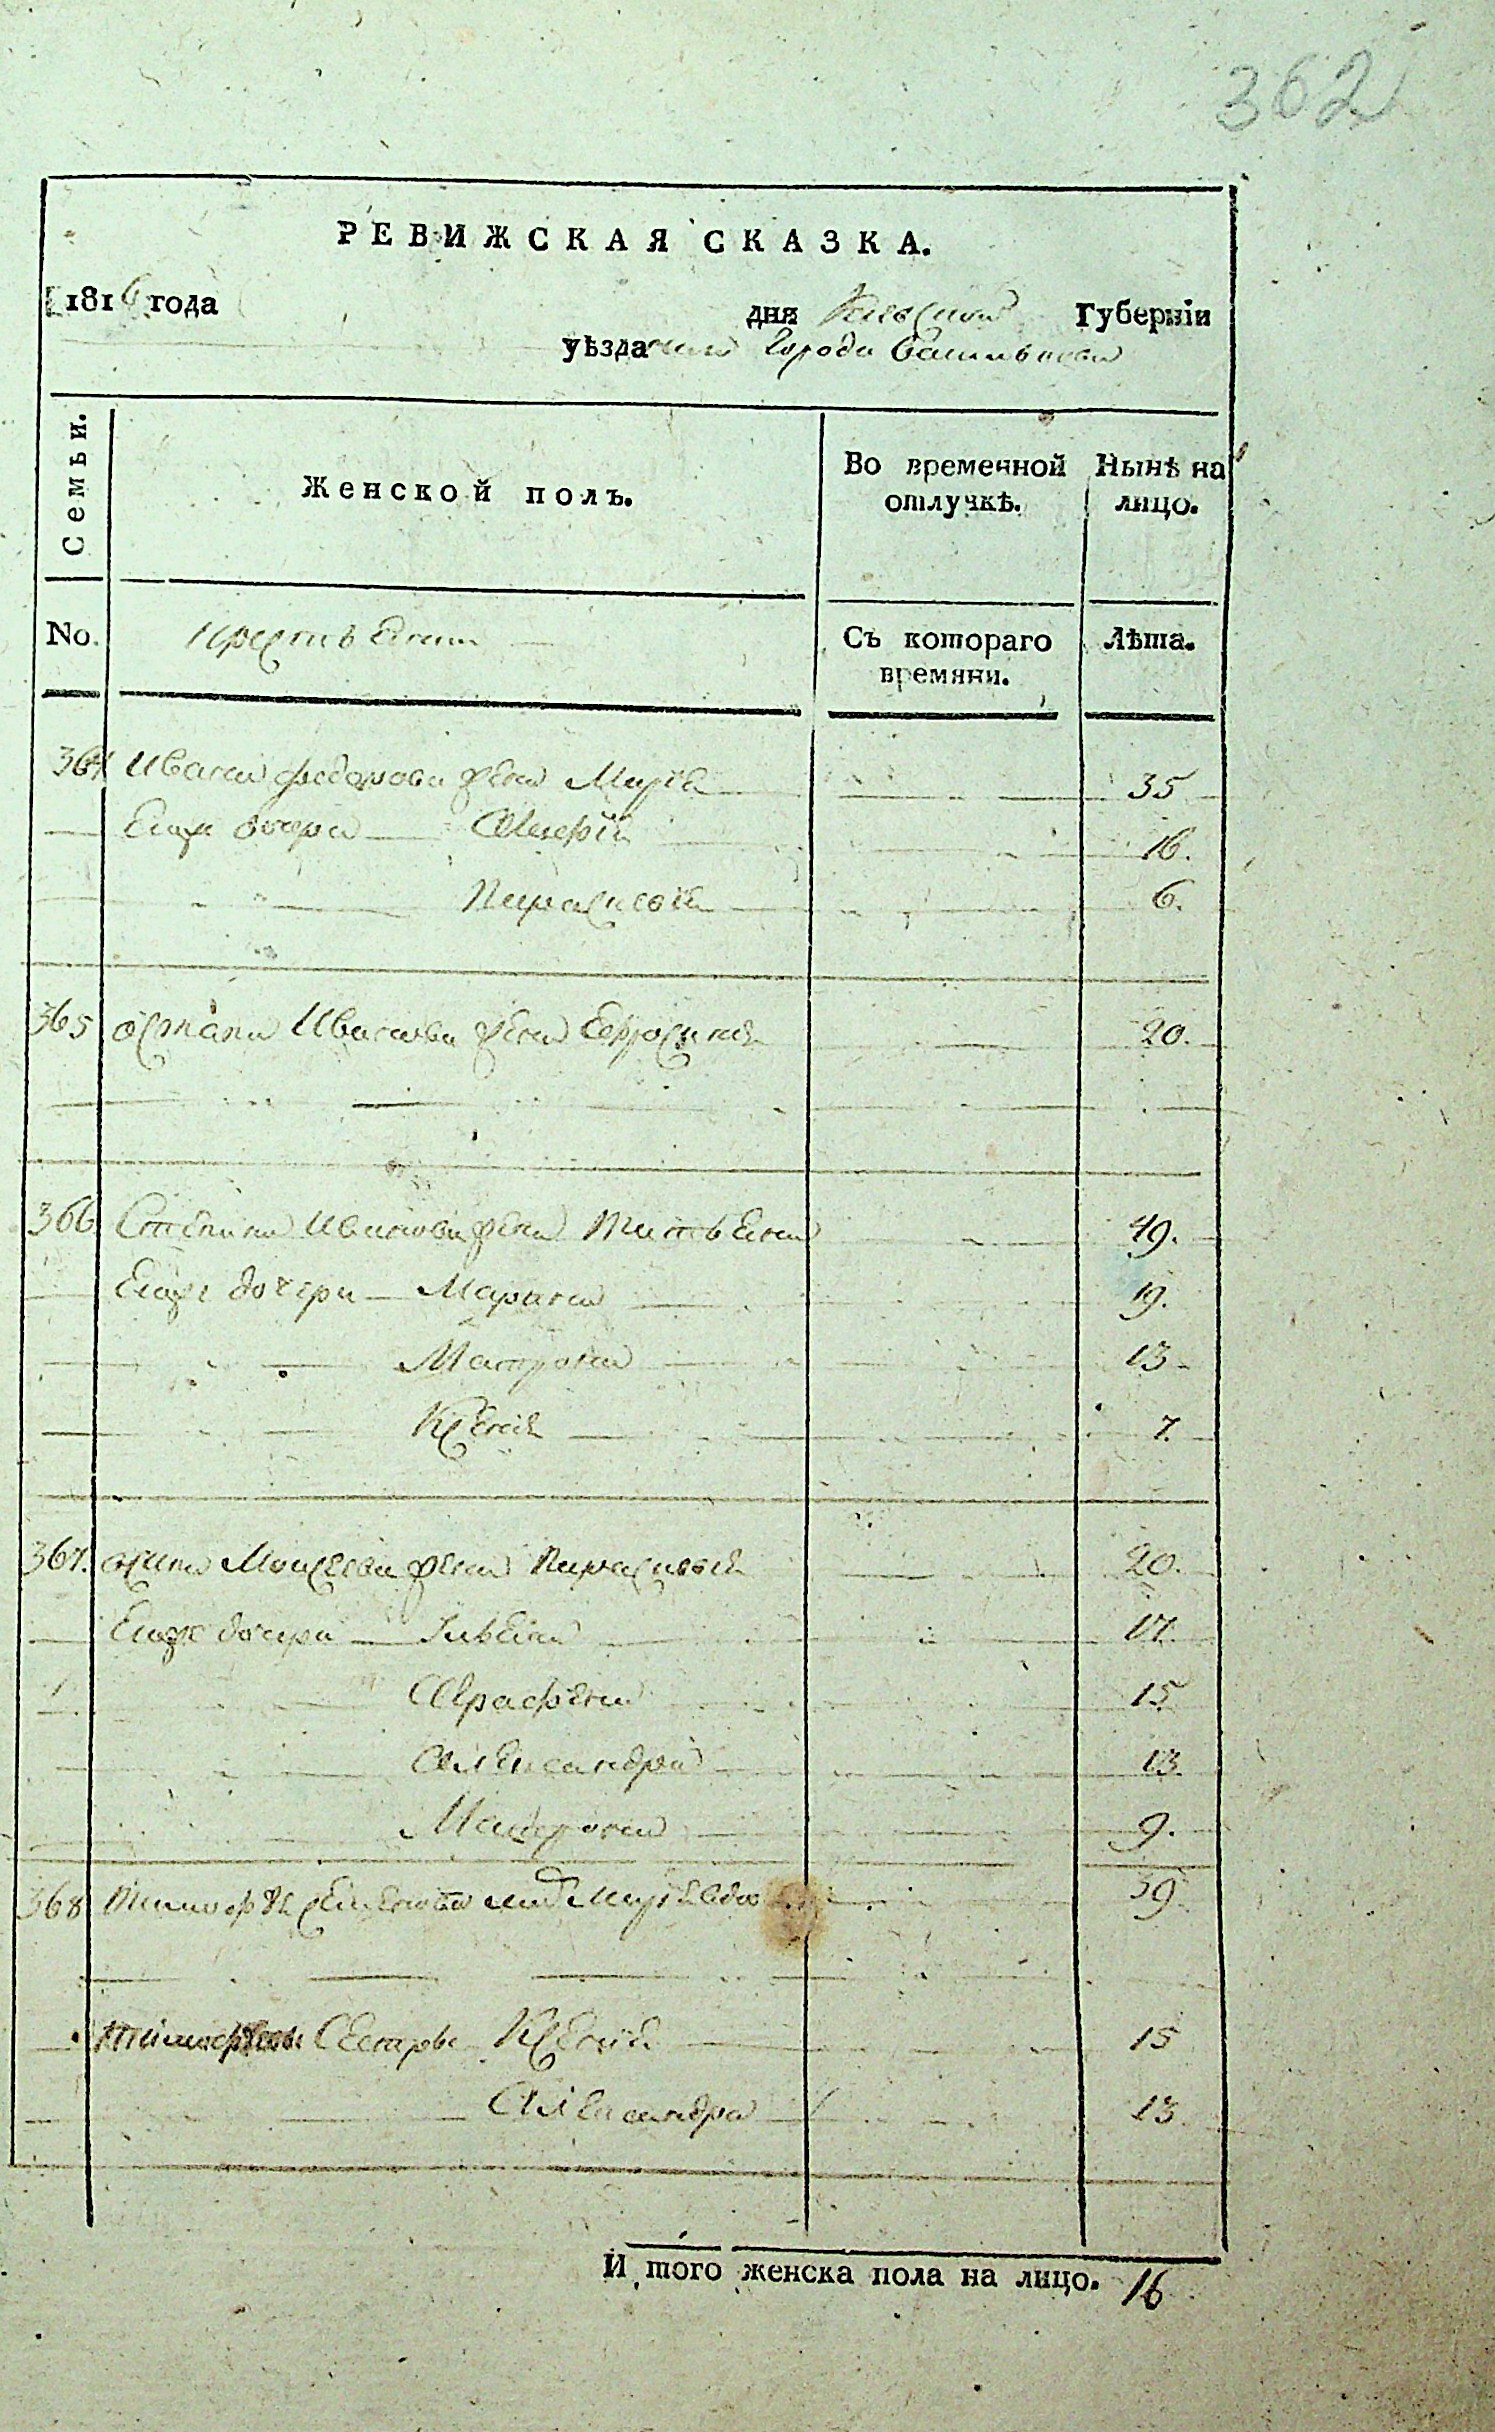 362
РЕВИЖСКАЯ СКАЗКА.
1816 года дня Киевской Губерніи
уѣзда города Василькова
Семьи.
Женской полъ.
Во временной отлучкѣ.
Нынѣ на лицо.
No.
крестьяни
Съ котораго времяни.
Лѣта.
364 Ивана Федорова жена Марья 35
Его же дочери Агафія 16.
Параскевія 6.
365 Остапа Иванова жена Ефросинія 20.
366 Степана Иванова жена Татьяна 49.
Его же дочери Марина 19.
Матрона 13
Ксенія 7.
367. Осипа Моисеева жена Параскевія 20.
Его же дочери Ульяна 17.
Аграфена 15
Александра 13.
Матрона 9.
368 Тимофея Семенова мать Марія вдова 39
Тимофея сестры Ксенія 15
Александра 13
И того женска пола на лицо. 16